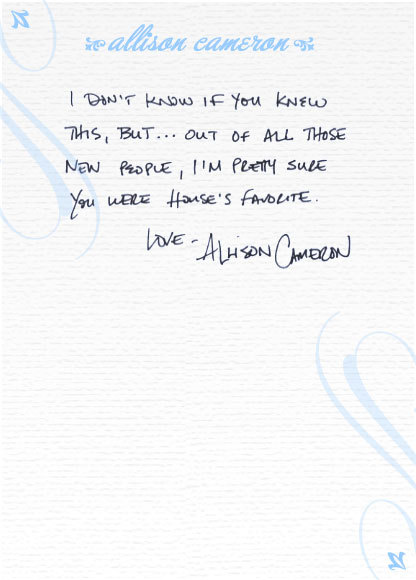 allison cameron
I DON'T KNOW IF YOU KNEW
THIS, BUT... OUT OF ALL THOSE
NEW PEOPLE, I'M PRETTY SURE
YOU WERE HOUSE'S FAVORITE.
LOVE - ALLISON CAMERON